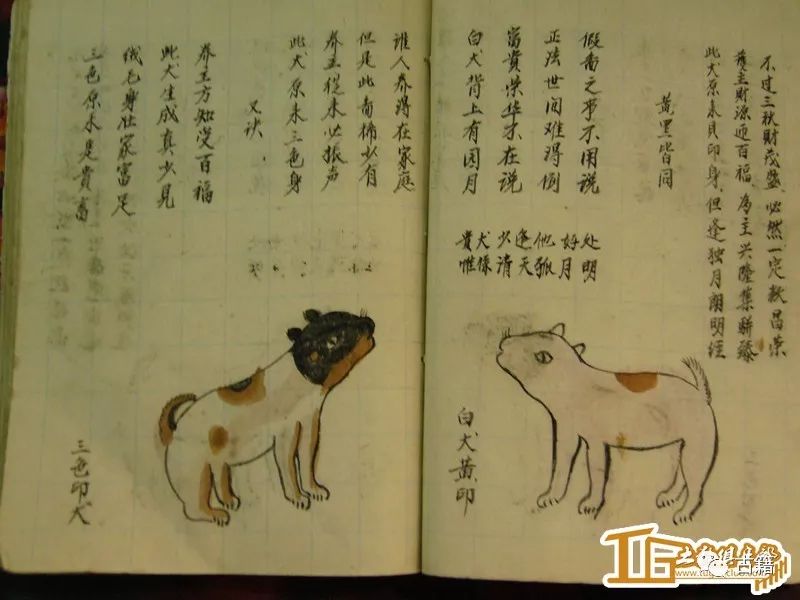 三色原来是貴畜
绒毛身壮家富足
此犬生成真少見
养主方知受百福
又诀
此犬原来三色身
养主從来必振声
但是此畜稀少有
谁人养得在家庭
三色印犬
白犬背上有圆月
富貴荣华不在说
正法世间难得倒
假畜之事不用说
貴犬少逢他好处
惟係请天狐月明
黄黑皆同
此犬原来真印身 但逢独月朗明经
護主财源迎百福 為主兴隆業骈臻
不过三秋财茂盛 必然一定款昌荣
白犬黄印
古籍